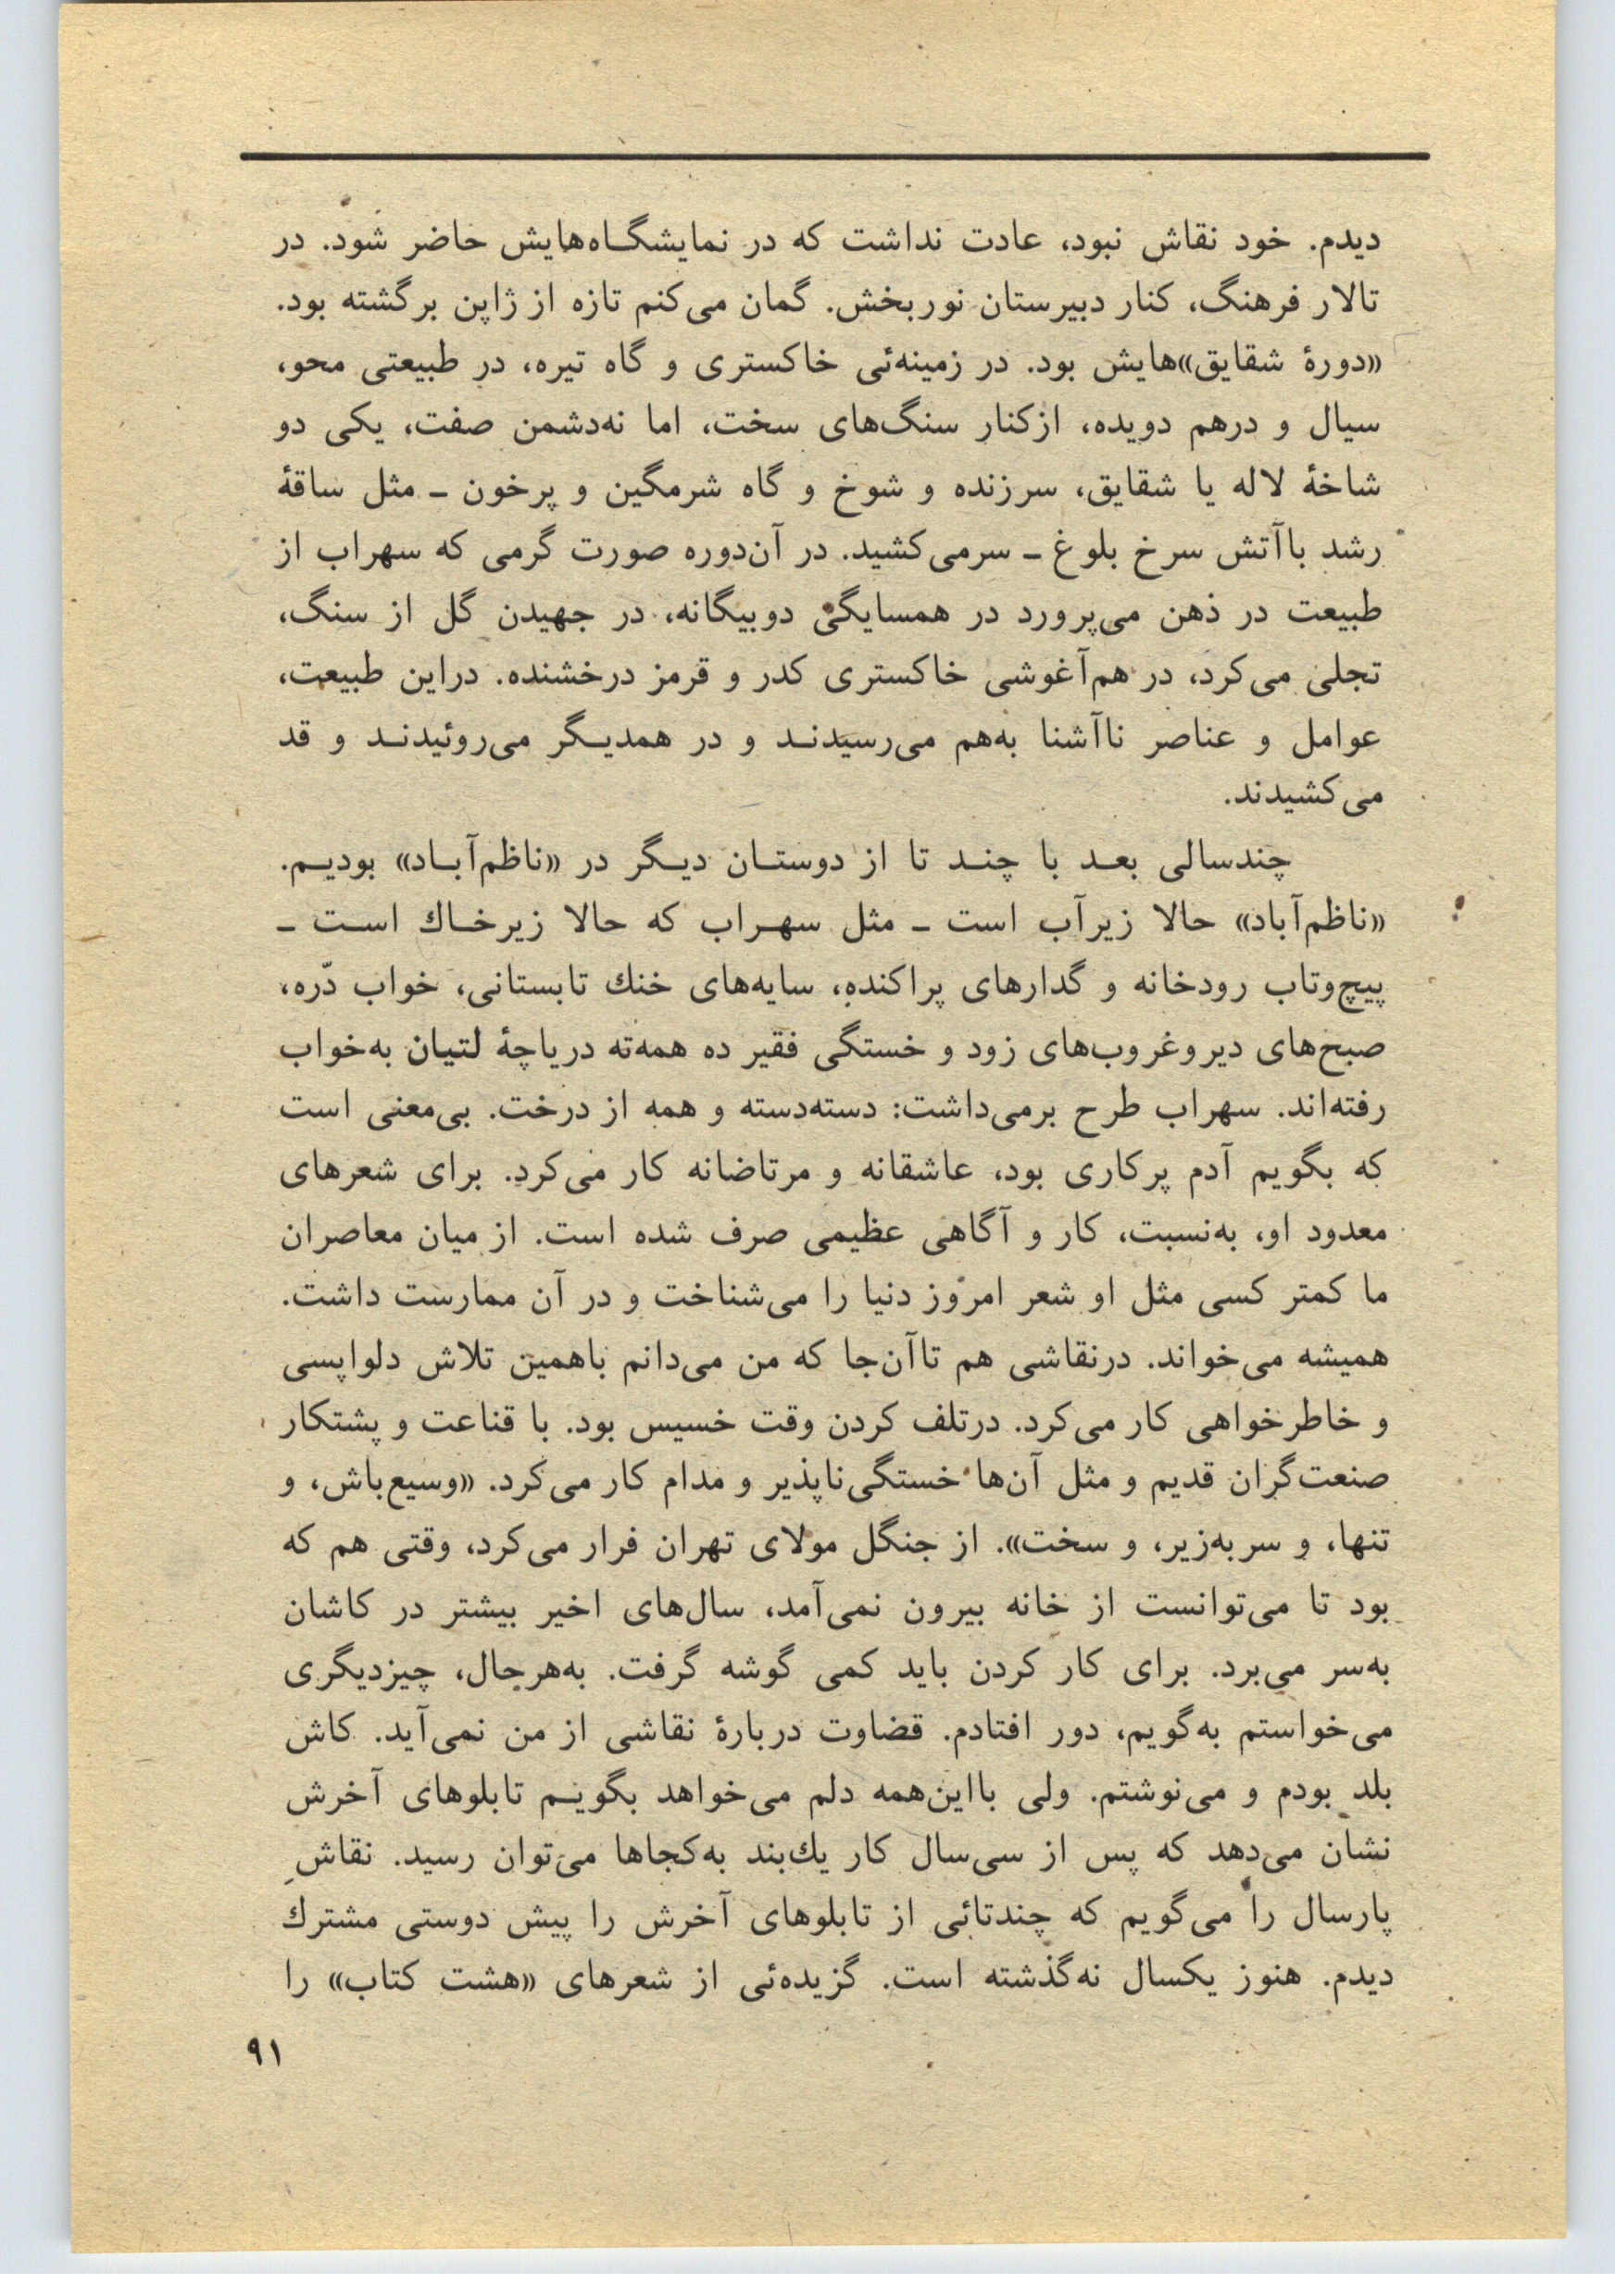 دیدم. خود نقاش نبود، عادت نداشت که در نمایشگاه‌هایش حاضر شود. در
تالار فرهنگ، کنار دبیرستان نوربخش. گمان می‌کنم تازه از ژاپن برگشته بود.
«دورهٔ شقایق»هایش بود. در زمینه‌ئی خاکستری و گاه تیره، در طبیعتی محو،
سیال و درهم دویده، ازکنار سنگ‌های سخت، اما نه‌دشمن صفت، یکی دو
شاخهٔ لاله یا شقایق، سرزنده و شوخ و گاه شرمگین و پرخون ـ مثل ساقهٔ
رشد باآتش سرخ بلوغ ـ سرمی‌کشید. در آن‌دوره صورت گرمی که سهراب از
طبیعت در ذهن می‌پرورد در همسایگیِ دوبیگانه، در جهیدن گل از سنگ،
تجلی می‌کرد، در هم‌آغوشی خاکستری کدر و قرمز درخشنده. دراین طبیعت،
عوامل و عناصر ناآشنا به‌هم می‌رسیدند و در همدیگر می‌روئیدند و قد
می‌کشیدند.
چندسالی بعد با چند تا از دوستان دیگر در «ناظم‌آباد» بودیم.
«ناظم‌آباد» حالا زیرآب است ـ مثل سهراب که حالا زیرخاك است ـ
پیچ‌وتاب رودخانه و گدارهای پراکنده، سایه‌های خنك تابستانی، خواب دّره،
صبح‌های دیروغروب‌های زود و خستگی فقیر ده همه‌ته دریاچهٔ لتیان به‌خواب
رفته‌اند. سهراب طرح برمی‌داشت: دسته‌دسته و همه از درخت. بی‌معنی است
که بگویم آدم پرکاری بود، عاشقانه و مرتاضانه کار می‌کرد. برای شعرهای
معدود او، به‌نسبت، کار و آگاهی عظیمی صرف شده است. از میان معاصران
ما کمتر کسی مثل او شعر امروز دنیا را می‌شناخت و در آن ممارست داشت.
همیشه می‌خواند. درنقاشی هم تاآن‌جا که من می‌دانم باهمین تلاش دلواپسی
و خاطرخواهی کار می‌کرد. درتلف کردن وقت خسیس بود. با قناعت و پشتکار
صنعت‌گران قدیم و مثل آن‌ها خستگی‌ناپذیر و مدام کار می‌کرد. «وسیع‌باش، و
تنها، و سربه‌زیر، و سخت». از جنگل مولای تهران فرار می‌کرد، وقتی هم که
بود تا می‌توانست از خانه بیرون نمی‌آمد، سال‌های اخیر بیشتر در کاشان
به‌سر می‌برد. برای کار کردن باید کمی گوشه گرفت. به‌هرحال، چیزدیگری
می‌خواستم به‌گویم، دور افتادم. قضاوت دربارهٔ نقاشی از من نمی‌آید. کاش
بلد بودم و می‌نوشتم. ولی بااین‌همه دلم می‌خواهد بگویم تابلوهای آخرش
نشان می‌دهد که پس از سی‌سال کار یك‌بند به‌کجاها می‌توان رسید. نقاشِ
پارسال را می‌گویم که چندتائی از تابلوهای آخرش را پیش دوستی مشترك
دیدم. هنوز یکسال نه‌گذشته است. گزیده‌ئی از شعرهای «هشت کتاب» را
۹۱